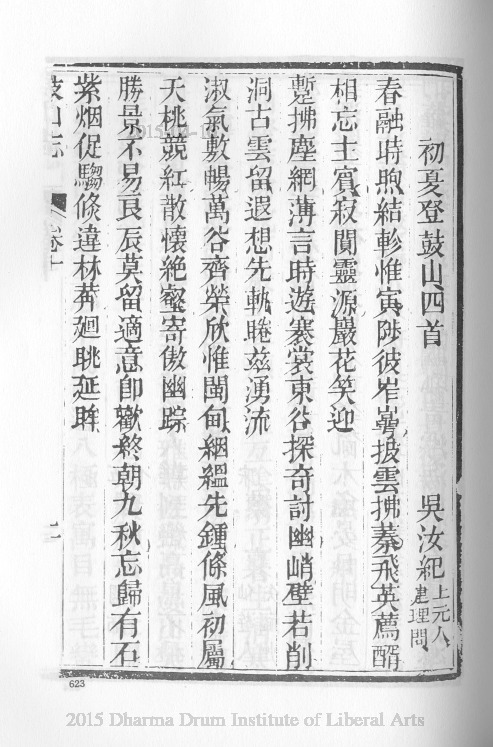 初夏登鼓山四首
吳汝紀上元人建理問
春融時煦結軫惟寅陟彼岸崿披雲拂蓁飛英薦醑
相忘主賓寂閴靈源巖花笑迎
蹔拂塵網薄言時遊褰裳東谷探奇討幽峭壁若削
洞古雲留遐想先軌睠茲湧流
淑氣敷暢萬谷齊榮欣惟閩甸絪縕先鍾條風初屬
夭桃競紅散懷絶壑寄傲幽踪
勝景不易良辰莫留適意卽歡終朝九秋忘歸有石
紫烟促騶倐違林莾廻眺延眸
鼓山志
卷十
623
2015 Dharma Drum Institute of Liberal Arts